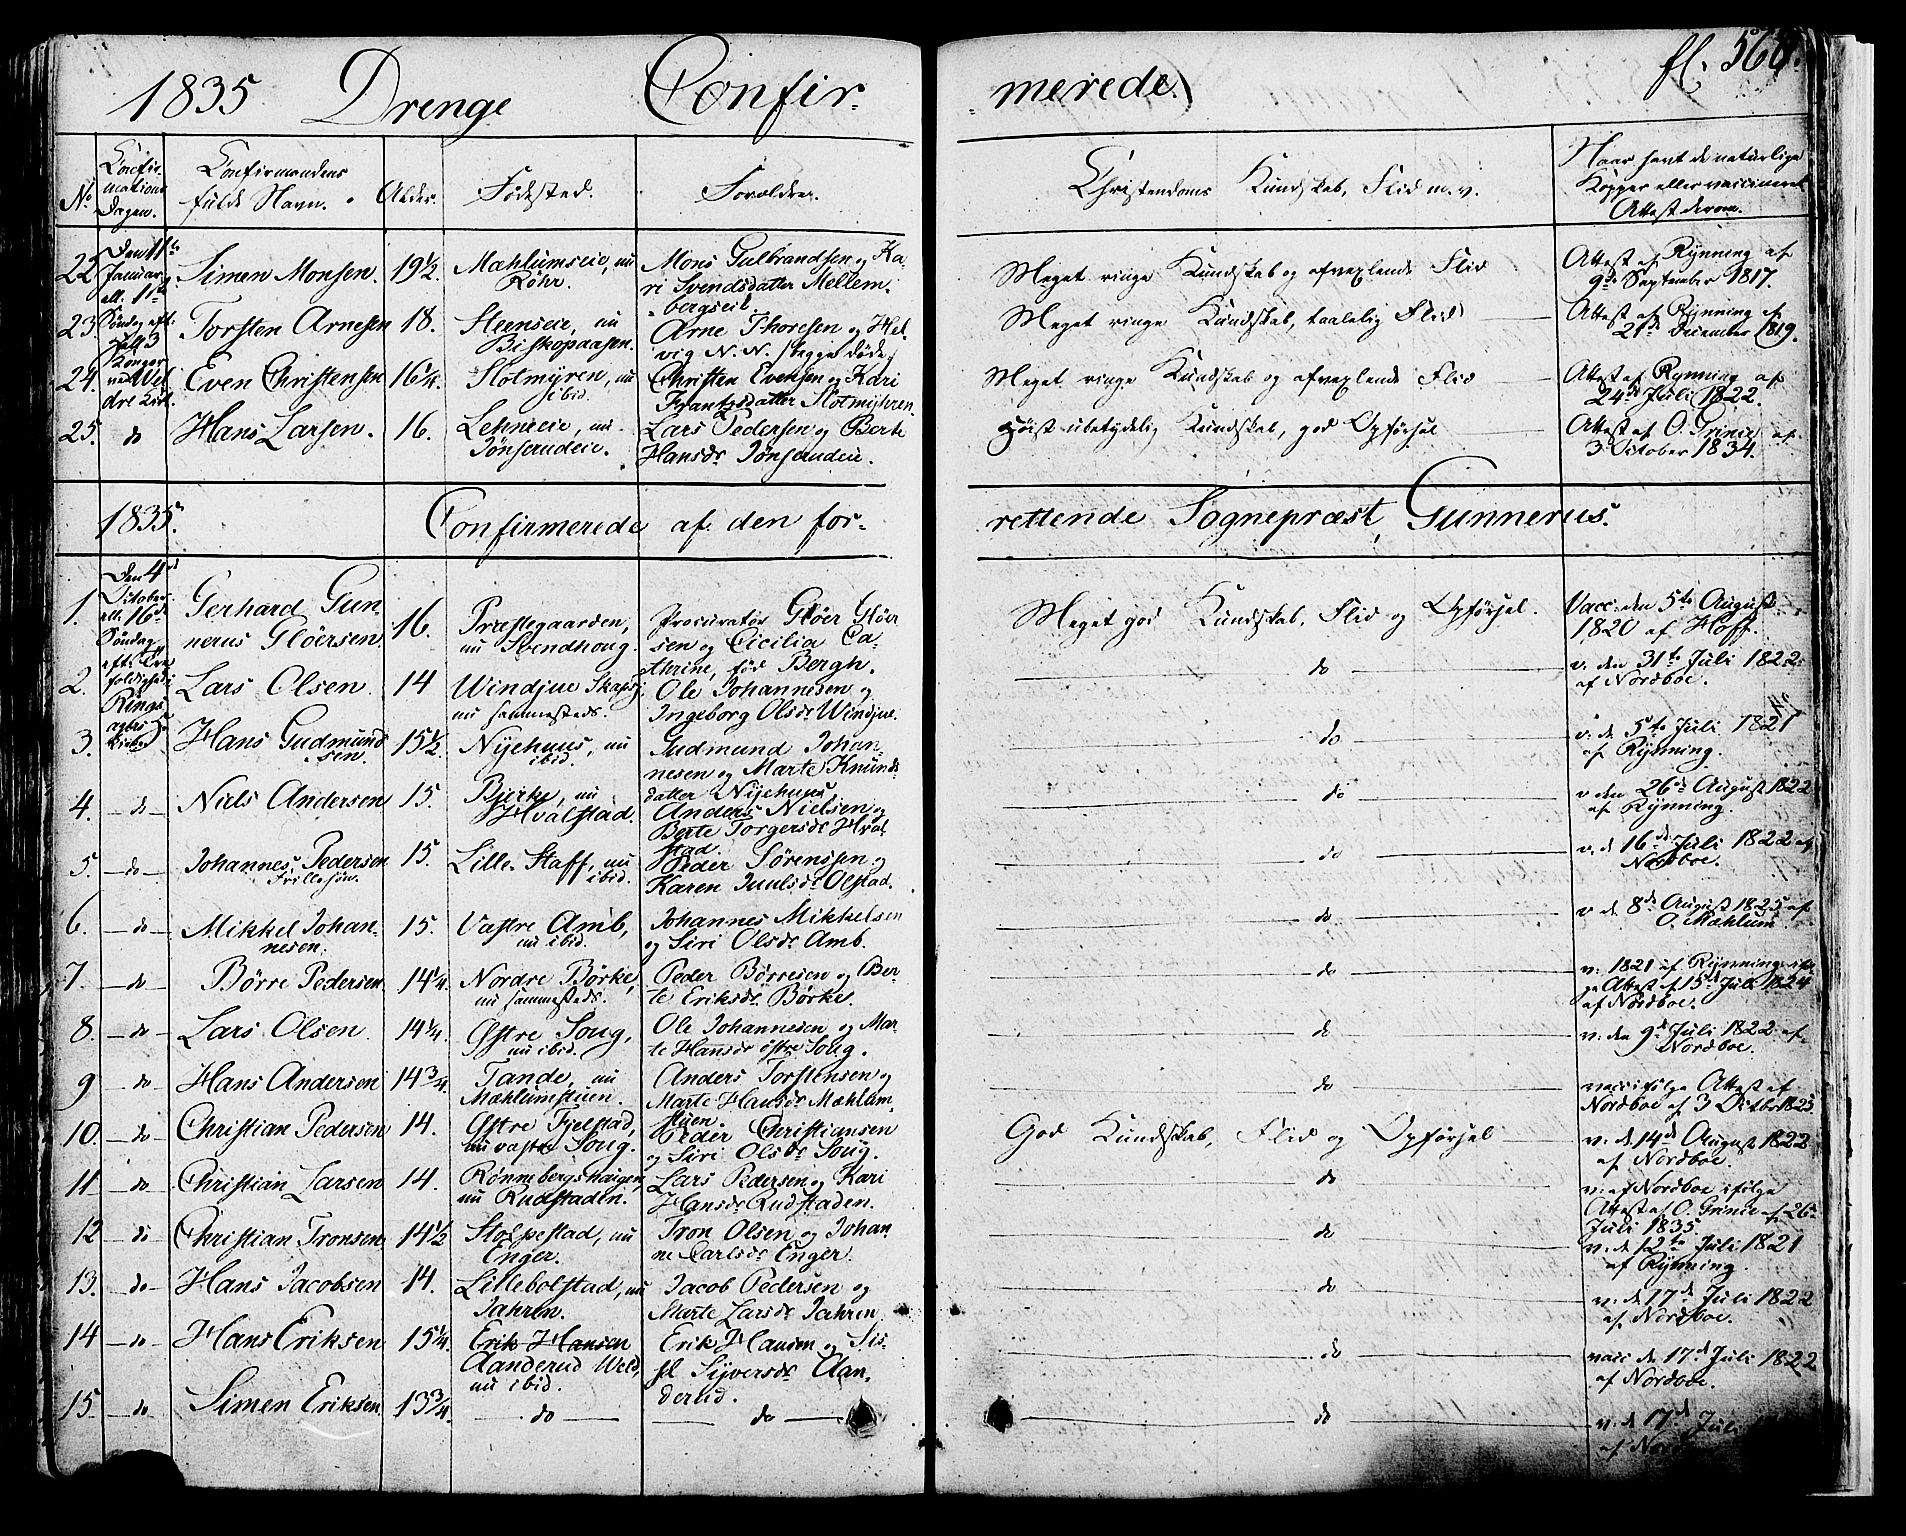 1835 Drenge Confir- merede.
fl. 560.
No
Confir-
mations
Dagen.
Confirmandens
fulde Navn.
Alder.
Fødested.
Forældre.
Christendoms Kundskab, Flid m. v.
Naar havt de naturlige
Kopper eller vaccineret
Attest derom.
22 Simen Monsen. 19½
Den 11te
Januar
ell. 1ste
Søndag eft:
Hell. 3
Konger
ved Vel
dre Kirk.
Mæhlumseie, nu
Røhr.
Mons Gulbrandsen og Ka-
ri Svendsdatter Mellem-
bergseie.
Meget ringe Kundskab og afvexlende Flid
Attest af Rynning af
9de September 1817.
23. Torsten Arnesen 18.
Steenseie, nu
Biskopaasen.
Arne Thoresen og Hel
vig N. N. begge døde
Meget ringe Kundskab, taalelig Flid
Attest af Rynning af
21de December 1819.
24. Even Christensen 16¼.
Slotmyren, nu
ibid.
Christen Evensen og Kari
Frantzsdatter Slotmyhren.
Meget ringe Kundskab og afvexlende Flid
Attest af Rynning af
24de Juli 1822.
25. do Hans Larsen. 16.
Lehneeie, nu
Jønsrudeie.
Lars Pedersen og Berte
Hansdr Jønsrudeie.
høist ubetydelig Kundskab, god Opførsel
Attest af O. Grinie af
3 October 1834.
1835. Confirmerede af den for- rettende Sognepræst, Gunnerus.
Den 4de
October
ell. 16de
Søndag
eft. Tre
foldighed i
Rings
agers
Kirke
1. Gerhard Gun
nerus Gløersen 16.
Præstegaarden,
nu Svendhoug.
Procurator Gløer Gløer
sen og Cicilia Ca-
thrine, fød Bergh.
Meget god Kundskab, Flid og Opførsel.
Vacc: den 5te August
1820 af Hoff.
2. Lars Olsen. 14
Windjue Skafs
nu sammesteds.
Ole Johannesen og
Ingeborg Olsdr Windjue.
do
v. den 31te Juli 1822
af Nordboe.
3. Hans Gudmund
sen. 15½
Nyehuus, nu
ibid.
Gudmund Johan-
nesen og Marte Knuds
datter Nyehuus
do
v: d. 5te Juli 1821
af Rynning.
4. do Niels Andersen 15.
Bjerke, nu
Hvalstad.
Anders Nielsen og
Berte Torgersdr Hval
stad.
do
v den 26de August 1822
af Rynning.
5. do Johannes Pedersen 15.
Frillesøn.
Lille Staff, nu
ibid.
Peder Sørenssen og
Karen Juulsdr Olstad.
do
v. d. 16de Juli 1822 af
Nordboe.
6. do Mikkel Johan-
nesen. 15.
Vestre Amb,
nu ibid.
Johannes Mikkelsen
og Siri Olsdr Amb.
do
v d. 8de August 1825 af
O. Mæhlum
7. do Børre Pedersen 14¼.
Nordre Børke,
nu sammesteds.
Peder Børresen og Ber-
te Eriksdr Børke.
do
v: 1821 af Rynning ifø
ge Attest af 15de Juli 1824
af Nordboe.
8. do Lars Olsen 14¼.
Østre Soug,
nu ibid.
Ole Johannesen og Mar-
te Hansdr østre Soug.
do
v: den 9de Juli 1822 af
Nordboe.
9 do Hans Andersen 14¾.
Tande, nu
Mæhlumstuen.
Anders Torstensen og
Marte Hansdr Mæhlum-
stuen.
do
vacc ifølge Attest af
Nordboe af 3 Octbr 1825.
10. do Christian Pedersen 14.
Østre Fjelstad,
nu vestre Soug.
Peder Christiansen
og Siri Olsdr Soug.
God Kundskab, Flid og Opførsel
v: d. 14de August 1822
af Nordboe.
11 do Christian Larsen 14.
Rønnebergshaugen,
nu Rudstaden.
Lars Pedersen og Kari
Hansdr Rudstaden.
do
v: af Nordboe ifølge
Attest af O. Grinie af 26
Juli 1835
12 do Christian Tronsen 14½
Stolpestad, nu
Enger.
Tron Olsen og Johan
ne Carlsdr Enger.
do
v: d. 12te Juli 1821
af Rynning.
13. do Hans Jacobsen 14.
Lillebolstad, nu
Jahren.
Jacob Pedersen og
Marte Larsdr Jahren
do
v: d. 17de Juli 1822
af Nordboe.
14 do Hans Eriksen 15¼.
Erik Hansen
Aanderud Weld.
nu ibid.
Erik Hansen og Sis
sel Syversdr Aan-
derud.
do
vacc d. 17de Juli 1822
af Nordboe.
15 do Simen Eriksen. 13¾.
do do
do
v: d. 17de Juli
af Nord